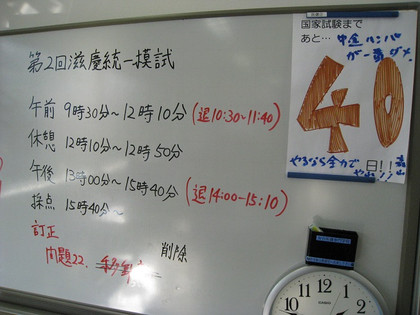 第2回滋慶統一模試
午前 9時30分～12時10分 (退10:30～11:40)
休憩 12時10分～12時50分
午後 13時00分～15時40分 (退14:00～15:10)
採点 15時40分～
訂正
問題22. 削除
国家試験まで
あと…
40
日!!
やるなら全力で
12
1
2
3
11
10
9
CASIO